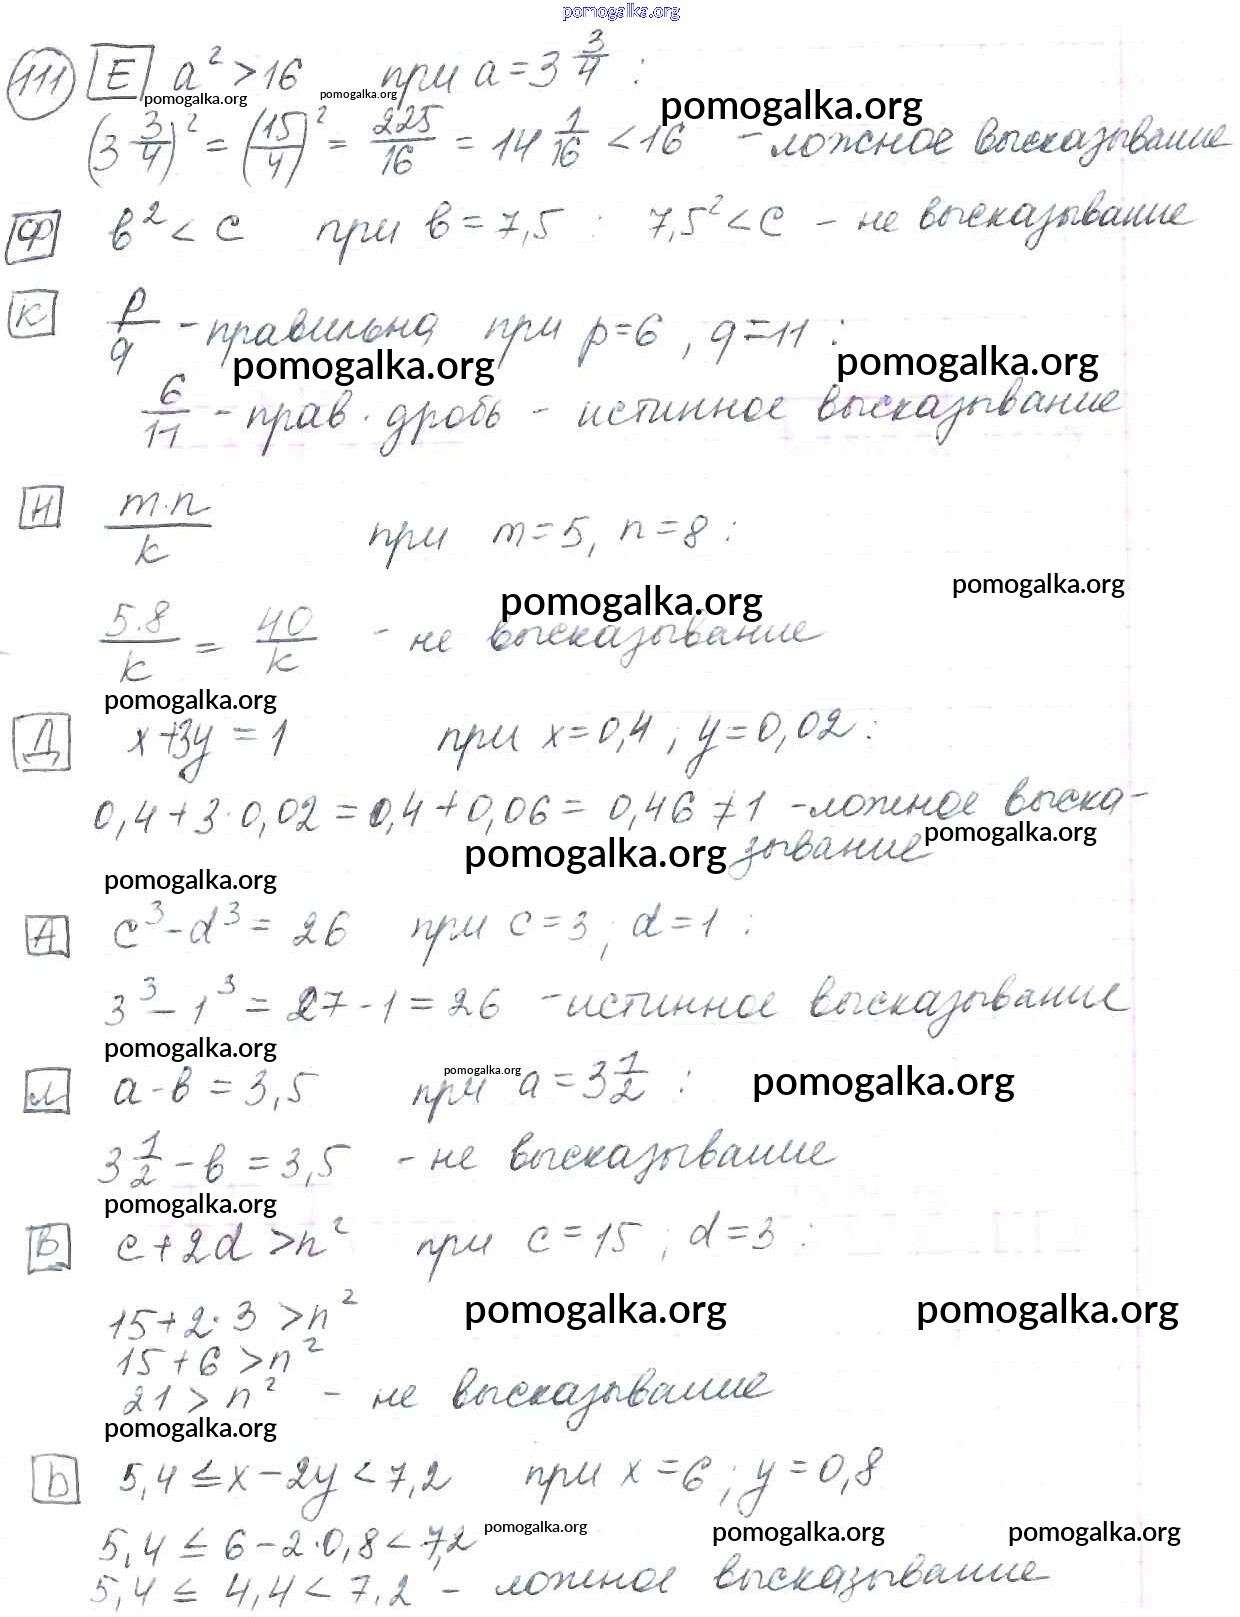 pomogalka.org
111 Е a² > 16 при a = 3 3/4 :
pomogalka.org pomogalka.org pomogalka.org
(3 3/4)² = (15/4)² = 225/16 = 14 1/16 < 16 - ложное высказывание
Ф b² < c при b = 7,5 : 7,5² < c - не высказывание
К p/q - правильна при p=6, q=11 :
pomogalka.org pomogalka.org
6/11 - прав. дробь - истинное высказывание
Н m·n/k при m=5, n=8 :
pomogalka.org pomogalka.org
5·8/k = 40/k - не высказывание
pomogalka.org
Д x+3y = 1 при x=0,4 ; y=0,02 :
0,4+3·0,02 = 0,4+0,06 = 0,46 ≠ 1 - ложное выска-
pomogalka.org зывание pomogalka.org
pomogalka.org
А c³-d³ = 26 при c=3 ; d=1 :
3³-1³ = 27-1 = 26 - истинное высказывание
pomogalka.org
Л a-b = 3,5 при a = 3 1/2 :
pomogalka.org pomogalka.org
3 1/2 - b = 3,5 - не высказывание
pomogalka.org
В c+2d > n² при c=15 ; d=3 :
15+2·3 > n²
pomogalka.org pomogalka.org
15+6 > n²
21 > n² - не высказывание
pomogalka.org
Ь 5,4 ≤ x-2y < 7,2 при x=6 ; y=0,8
5,4 ≤ 6-2·0,8 < 7,2
pomogalka.org pomogalka.org pomogalka.org
5,4 ≤ 4,4 < 7,2 - ложное высказывание